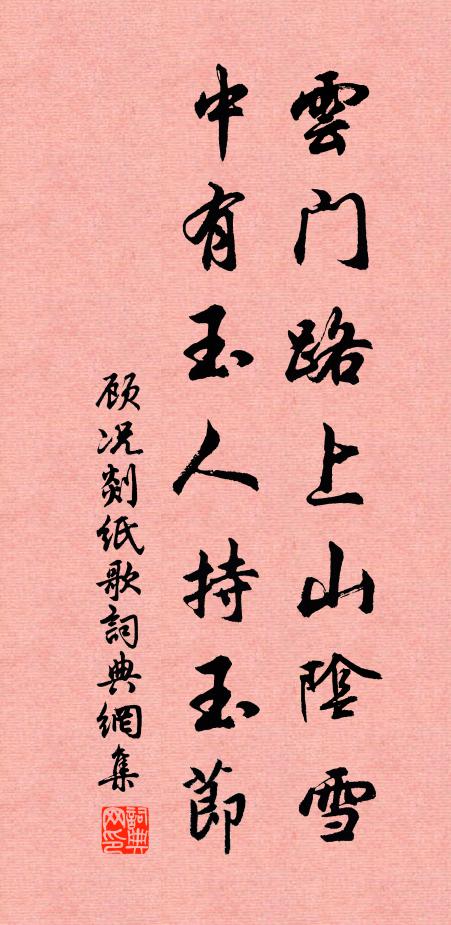 雲门路上山陰雪
中有玉人持玉節
顾况剡纸歌词典網集
詞典网印